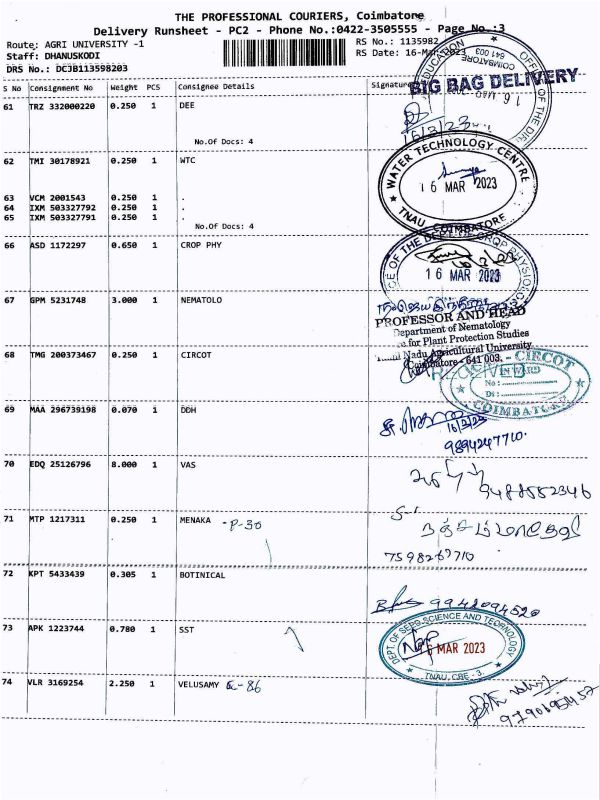 THE PROFESSIONAL COURIERS, Coimbatore
Delivery Runsheet - PC2 - Phone No.:0422-3505555 - Page No.:3
Route: AGRI UNIVERSITY -1
RS No.: 1135982
Staff: DHANUSKODI
RS Date: 16-Mar-2023
DRS No.: DC3B113598203
S No Consignment No Weight PCS Consignee Details Signature
BIG BAG DELIVERY
61 TRZ 332000220 0.250 1 DEE
16/3/23
No.Of Docs: 4
62 TMI 30178921 0.250 1 WTC
WATER TECHNOLOGY CENTRE
16 MAR 2023
TNAU, COIMBATORE
63 VCM 2001543 0.250 1 .
64 IXM 503327792 0.250 1 .
65 IXM 503327791 0.250 1 .
No.Of Docs: 4
66 ASD 1172297 0.650 1 CROP PHY
16 MAR 2023
67 GPM 5231748 3.000 1 NEMATOLO
PROFESSOR AND HEAD
Department of Nematology
for Plant Protection Studies
Tamil Nadu Agricultural University
Coimbatore - 641 003.
68 TMG 200373467 0.250 1 CIRCOT
CIRCOT
INWARD
No :
Dt :
COIMBATORE
69 MAA 296739198 0.070 1 DDH
16/3/23
9894247710.
70 EDQ 25126796 8.000 1 VAS
9488552346
71 MTP 1217311 0.250 1 MENAKA -P-30
7598267710
72 KPT 5433439 0.305 1 BOTINICAL
9942094520
73 APK 1223744 0.780 1 SST
DEPT. OF SEED SCIENCE AND TECHNOLOGY
16 MAR 2023
TNAU, CBE - 3.
74 VLR 3169254 2.250 1 VELUSAMY